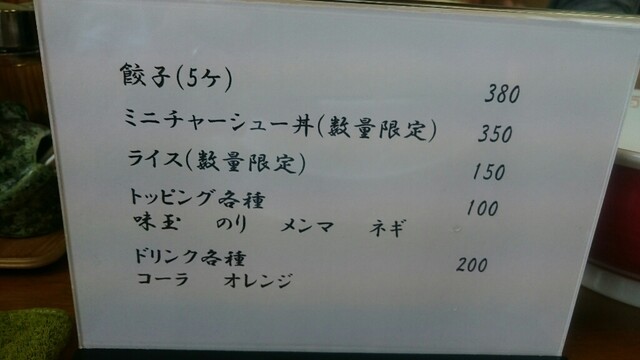 餃子(5ケ) 380
ミニチャーシュー丼(数量限定) 350
ライス(数量限定) 150
トッピング各種 100
味玉 のり メンマ ネギ
ドリンク各種 200
コーラ オレンジ